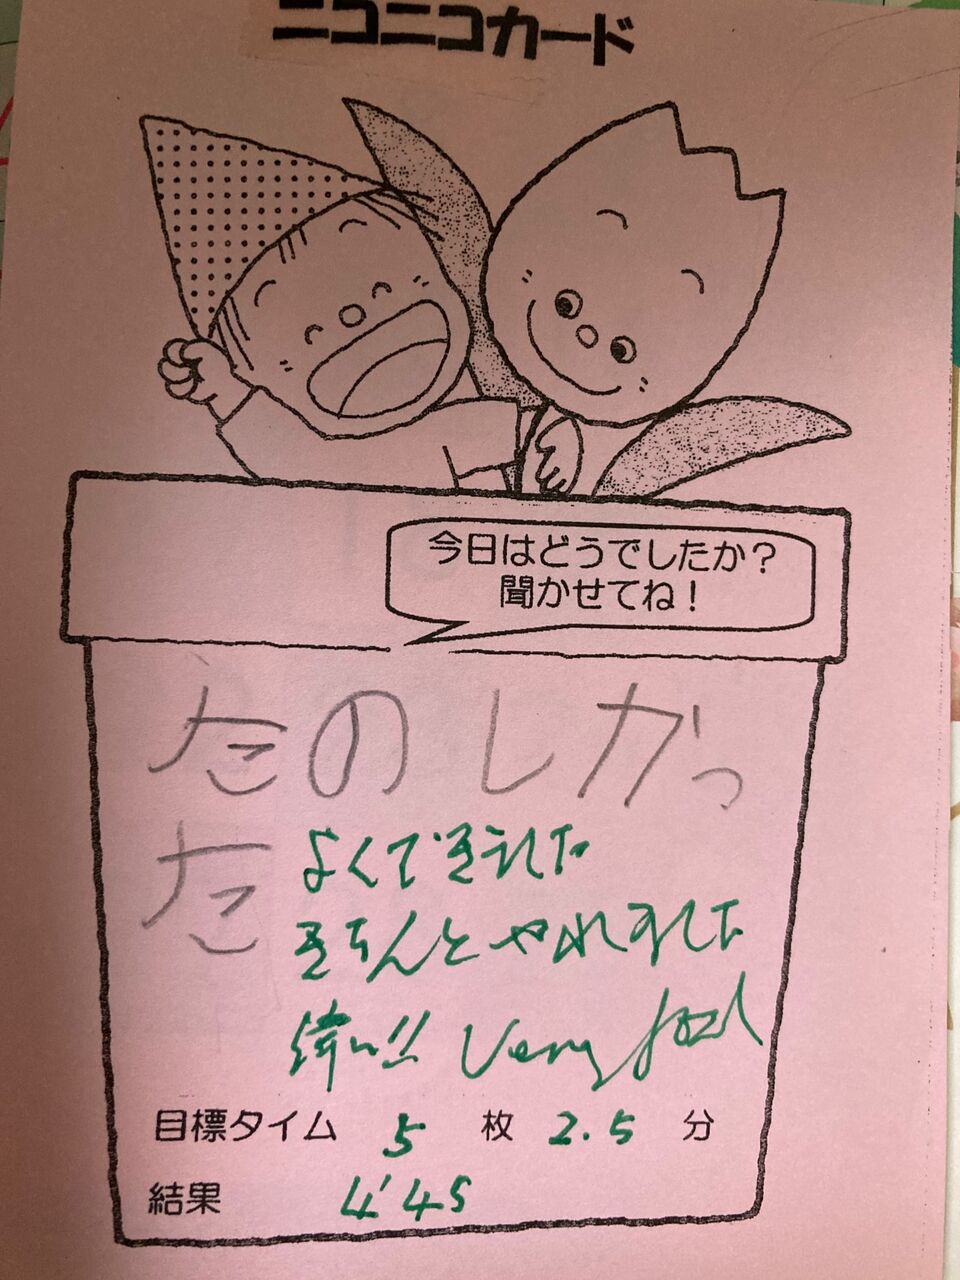 ニコニコカード
今日はどうでしたか?
聞かせてね!
たのしかっ
た
よくできました
きちんとやれました
偉い!! Very good
目標タイム 5 枚 2.5 分
結果 4'45